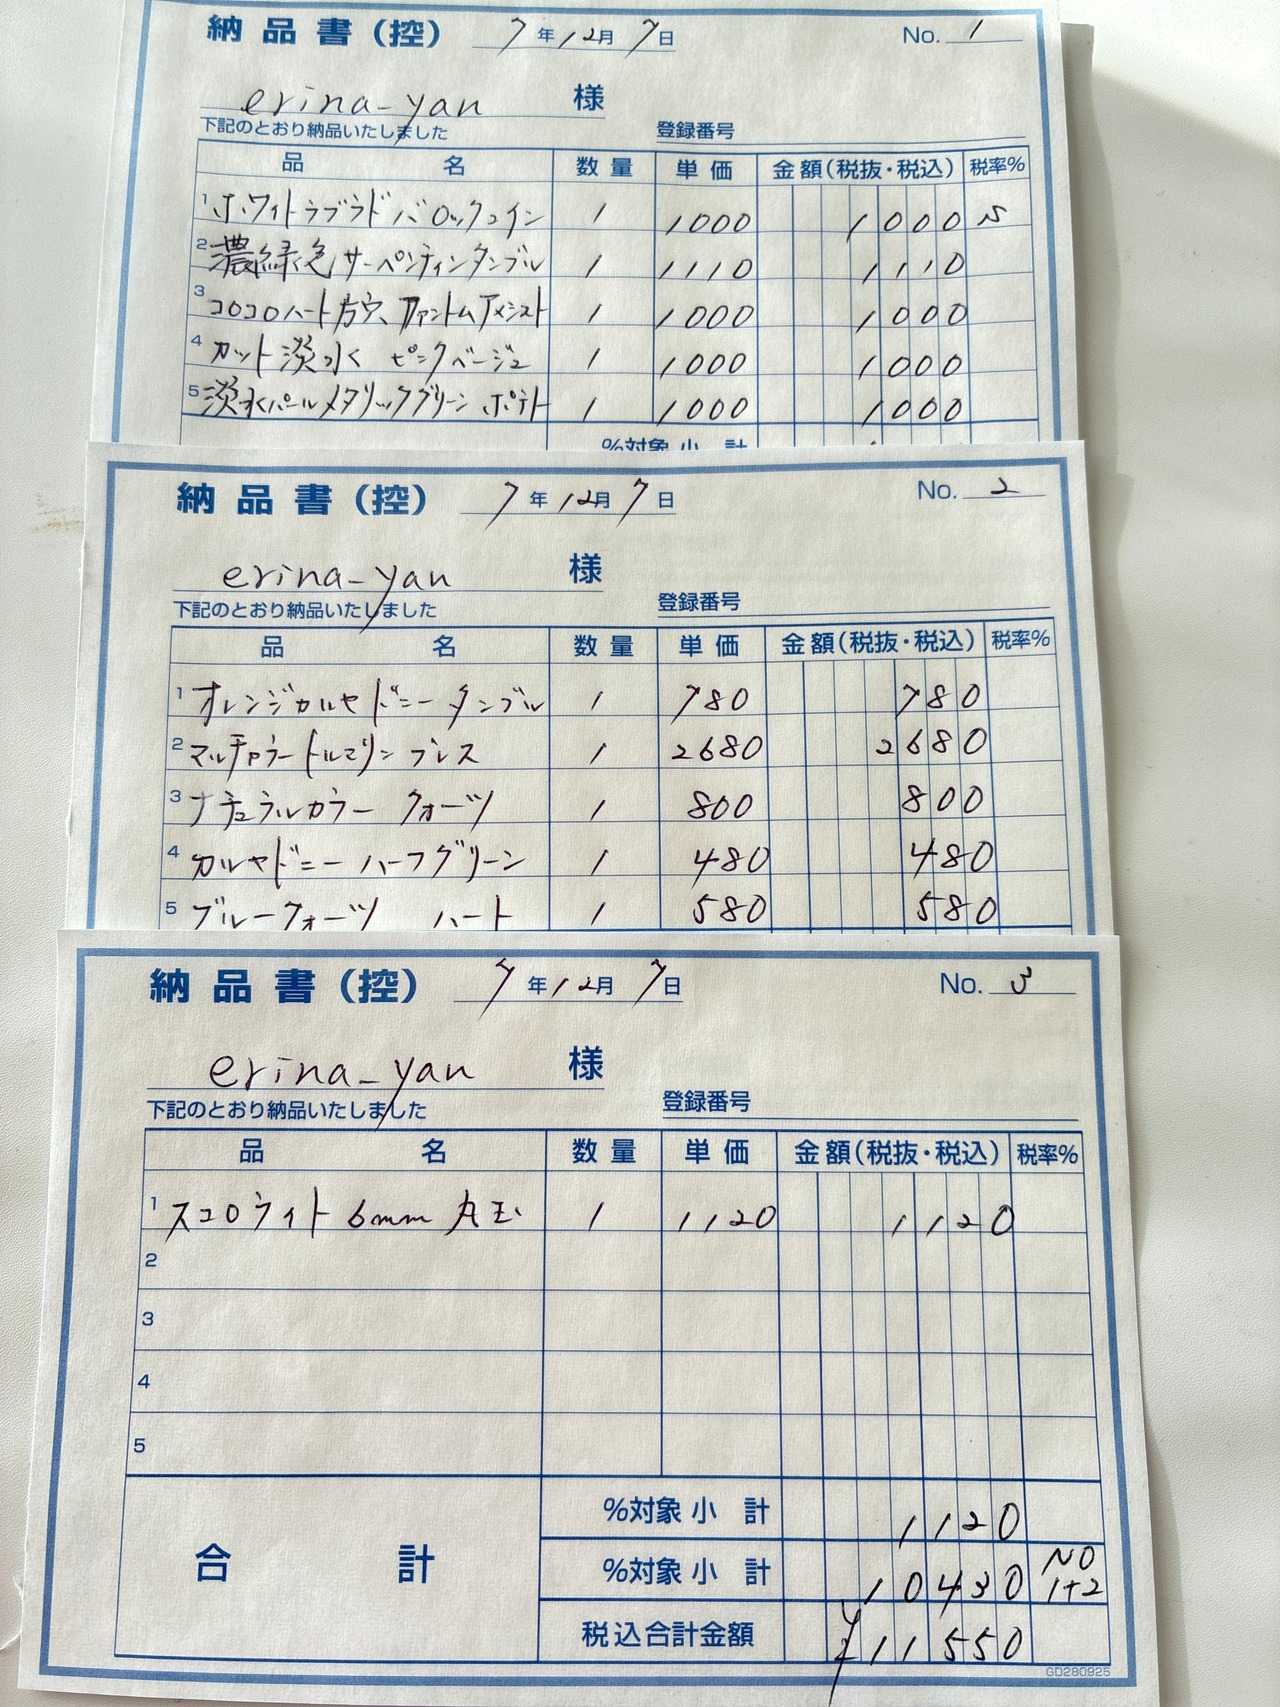 納品書(控) 7年12月7日 No. 1
erina-yan 様
下記のとおり納品いたしました 登録番号
品名 数量 単価 金額(税抜・税込) 税率%
1 ホワイトラブラドバロックコイン 1 1000 1000
2 濃緑色サーペンティンタンブル 1 1110 1110
3 コロコロハート方穴、ファントムアメシスト 1 1000 1000
4 カット淡水 ピンクベージュ 1 1000 1000
5 淡水パールメタリックグリーン ポテト 1 1000 1000
%対象小計
納品書(控) 7年12月7日 No. 2
erina-yan 様
下記のとおり納品いたしました 登録番号
品名 数量 単価 金額(税抜・税込) 税率%
1 オレンジカルセドニータンブル 1 780 780
2 マルチカラートルマリンブレス 1 2680 2680
3 ナチュラルカラー クォーツ 1 800 800
4 カルセドニー ハーフグリーン 1 480 480
5 ブルークォーツ ハート 1 580 580
納品書(控) 7年12月7日 No. 3
erina-yan 様
下記のとおり納品いたしました 登録番号
品名 数量 単価 金額(税抜・税込) 税率%
1 スコロライト 6mm 丸玉 1 1120 1120
2
3
4
5
合計
%対象小計 1120
%対象小計 10430 NO 1+2
税込合計金額 ¥11550
GD280925